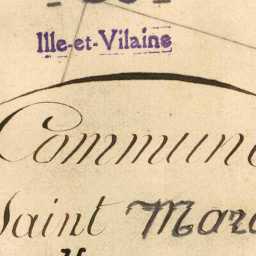 Ille-et-Vilaine
Commun
Saint Mar